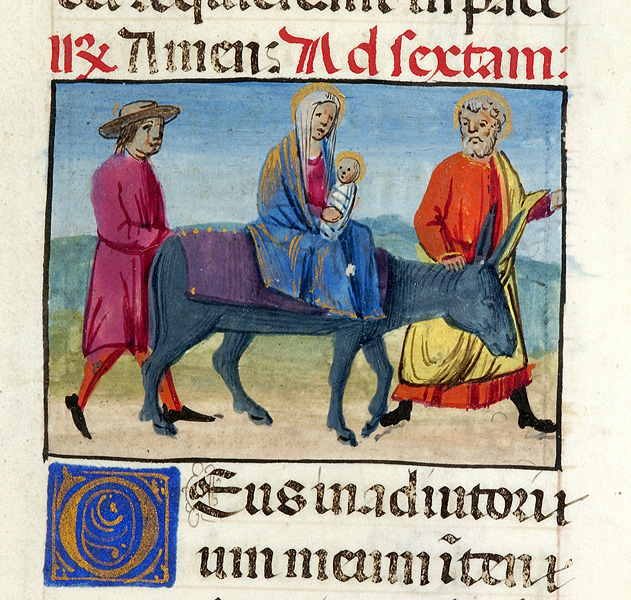 requiescant in pace
℟ Amen: Ad sextam:
Deus in adiutori
um meum īten